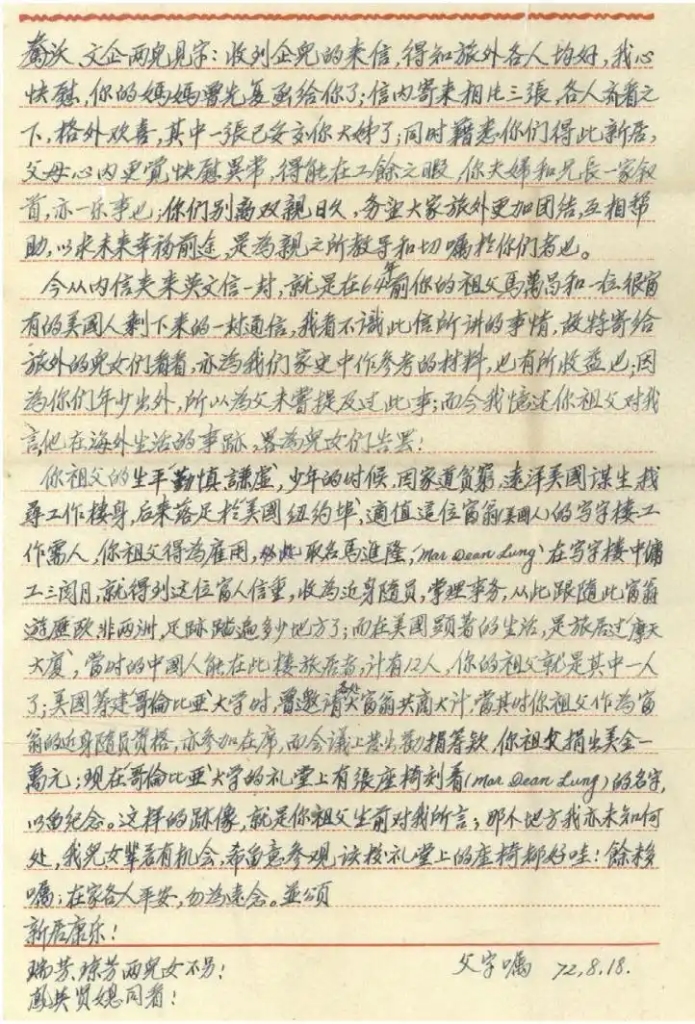 喬沃、文企兩兒見字：收到企兒的来信，得知旅外各人均好，我心
快慰，你的媽媽曾先复函給你了；信内寄来相片三張，各人齐看之
下，格外欢喜，其中一張已妥交你大姊了；同时藉悉你们得此新居，
父母心内更覚快慰異常，得能在工餘之暇，你夫婦和兄長一家叙
首，亦一乐事也；你们别离双親日久，务望大家旅外更加团结，互相帮
助，以求未来幸福前途，是為親之所教导和切嘱於你们者也。
今从内信夾来英文信一封，就是在64年前你的祖父馬萬昌和一位很富
有的美國人剩下来的一封通信，我看不識此信所講的事情，故特寄给
旅外的兒女们看看，亦為我们家史中作参考的材料，也有所收益也；因
為你们年少出外，所以為父未曾提及过此事；而今我憶述你祖父对我
言他在海外生活的事跡，畧為兒女们告罢！
你祖父的生平“勤慎謙虛”，少年的时候，因家道贫窮，遠洋美國谋生，找
尋工作棲身，后来落足於“美國纽约埠”，適值這位富翁(美國人)的写字楼工
作需人，你祖父得為雇用，取名馬進隆，(Mar Dean Lung)在写字楼中傭
工三閱月，就得到这位富人信重，收為近身随员，掌理事务，从此跟隨此富翁
遊歷欧非两洲，足跡踏遍多少地方了；而在美國顕著的生活，是旅居过“摩天
大廈”，當时的中國人能在此楼旅居者，計有12人，你的祖父就是其中一人
了；美國筹建“哥倫比亚”大学时，曾邀請各处大富翁共商大计，當其时你祖父作為富
翁的近身隨員资格，亦参加在席，而会议上发出勸捐筹款，你祖父捐出美金一
萬元；現在“哥倫比亚”大学的礼堂上有張座椅刻着(Mar Dean Lung)的名字，
以留纪念。这样的跡像，就是你祖父生前对我所言；那个地方我亦未知何
处，我兒女輩若有机会，希留意参观该校礼堂上的座椅都好哇！餘后
嘱；在家各人平安，勿為遠念。並頌
新居康乐！
父字嘱 72.8.18.
瑞芳、琼芳两兒女不另！
鳳英贤媳同看！